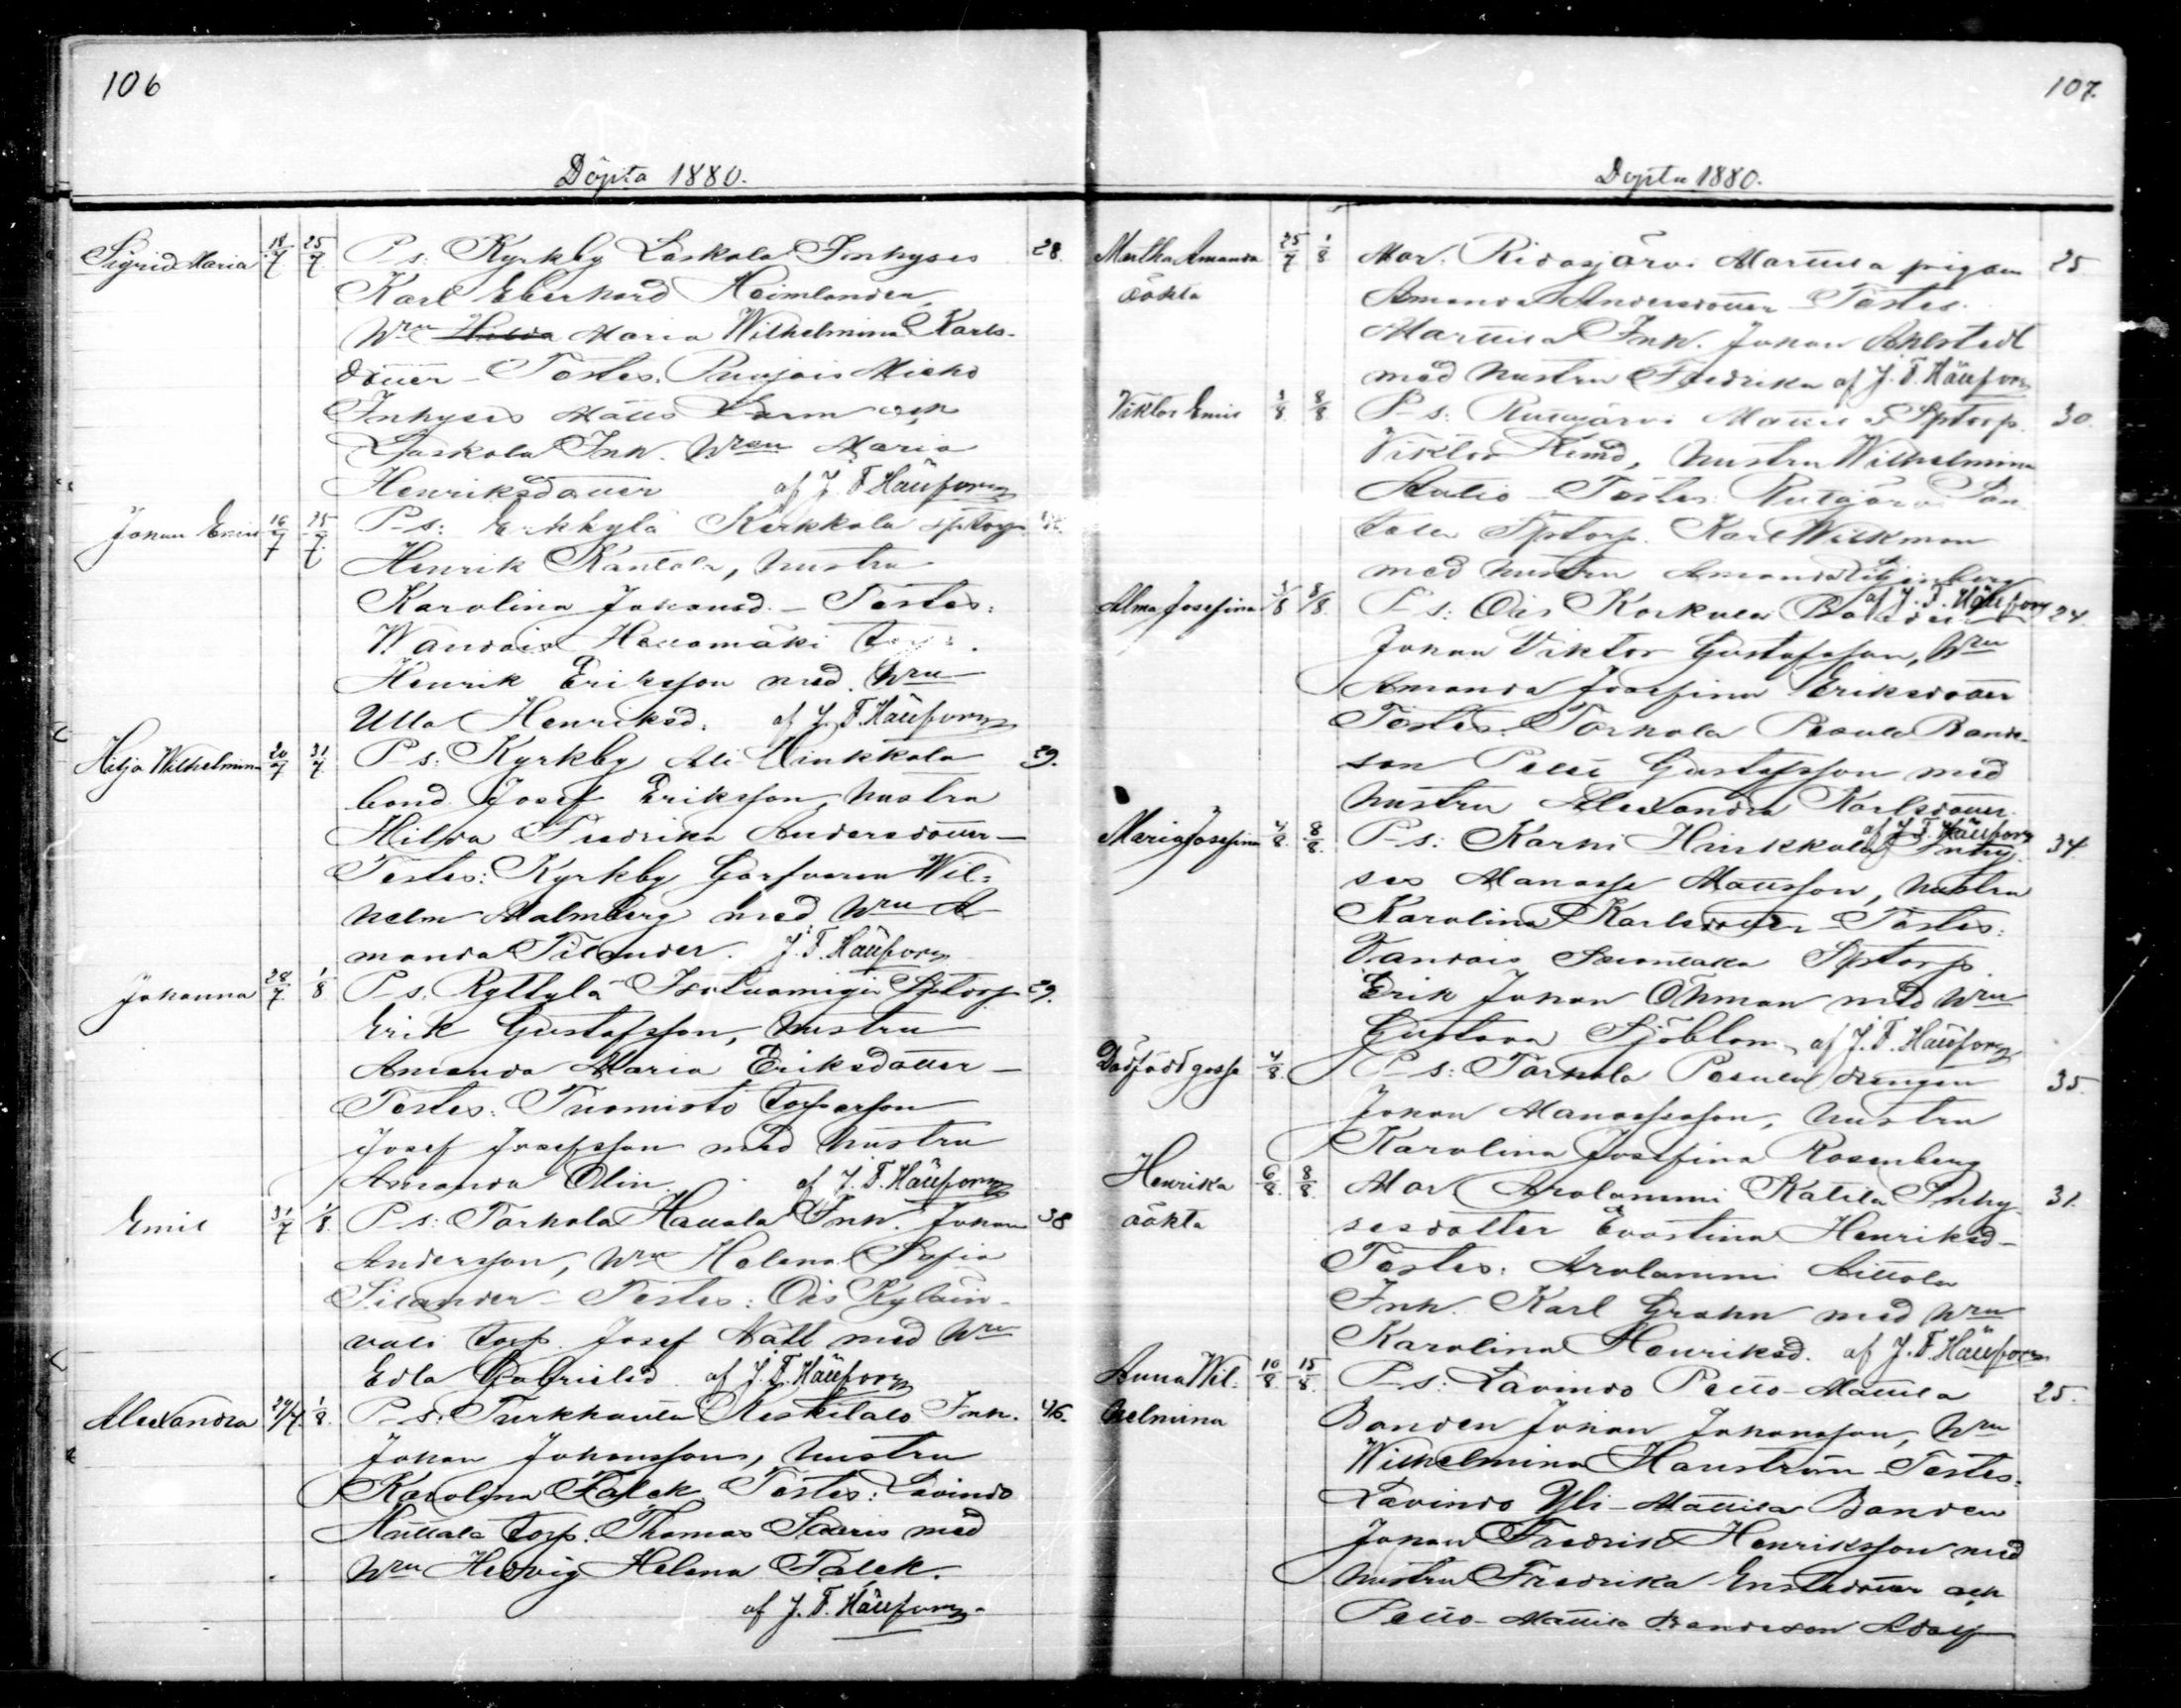 106
Döpta 1880.
Sigrid Maria 18/7 25/7 P-s: Kyrkby Laskala Inhyses 28.
Karl Eberhard Heimlander,
Hru Hilda Maria Wilhelmina Karls-
dotter - Testes: Puujois Micko
Inhyses Matts Term och
Laskala Inh. Hrun Maria
Henriksdotter af J. F. Hällfors
Johan Emil 16/7 25/7 P-s: Erkkylä Kirkkola sptorp.
Henrik Kantola, hustru
Karolina Johansd. - Testes:
Wandois Hellomäki torp.
Henrik Eriksson med Hru
Ulla Henriksd. af J. F. Hällfors
Hilja Wilhelmina 20/7 31/7 P-s: Kyrkby Ali Hinkkala 29.
bond. Josef Eriksson, hustru
Hilda Fredrika Andersdotter -
Testes: Kyrkby Garfvaren Wil-
helm Malmberg med Hru A-
manda Tilander. J. F. Hällfors
Johanna 28/7 1/8 P-s. Ryttylä Isotuomisto Sptorp. 29.
Erik Gustafsson, hustru
Amanda Maria Eriksdotter -
Testes: Tuomisto torparson
Josef Josefsson med hustru
Amanda Olin. af J. F. Hällfors
Emil 31/7 1/8 P-s: Torhola Hausla Inh. Johan 38
Andersson, Hru Helena Sofia
Silander - Testes: Ois Kylän-
väli torp. Josef Nätt med Hru
Edla Gabrielsd. af J. F. Hällfors
Alexandra 29/7 1/8 P-s: Turkhauta Keskitalo Inh. 46.
Johan Johansson, hustru
Karolina Falck Testes: Lavindo
Anttala torp. Thomas Saaris med
Hru Hedvig Helena Falck.
af J. F. Hällfors
107.
Döpta 1880.
Martha Amanda 25/7 1/8 Mar. Ridasjärvi Marttila pigan 25
oäkta Amanda Andersdotter - Testes.
Marttila Inh. Johan Ahlstedt
med hustru Fredrika af J. F. Hällfors
Viktor Emil 3/8 8/8 P-s: Rutajärvi Mattila Sptorp. 30.
Viktor Kind, hustru Wilhelmina
Aulio - Testes: Rutajärvi San
tala Sptorp. Karl Wickman
med hustru Amanda Liljenberg
af J. F. Hällfors
Alma Josefina 3/8 8/8 P-s: Ois Korkula Bonden 24.
Johan Viktor Gustafsson, Hru
Amanda Josefina Eriksdotter
Testes: Torhola Paavola Bonde-
son Pelle Gustafsson med
hustru Alexandra Karlsdotter.
af J. F. Hällfors
Maria Josefina 4/8 8/8 P-s: Karhi Hinkkala Inhy- 34.
ses Manasse Mattsson, hustru
Karolina Karlsdotter - Testes:
Vandois Sptorp.
Erik Johan Öhman med Hru
Gustava Sjöblom af J. F. Hällfors
Dödfödd gosse 4/8 P-s: Torhola Paavola drengen 35.
Johan Manassesson, hustru
Karolina Josefina Rosenberg
Henrika 6/8 8/8 Mar Arolammi Katila Inhy- 31.
oäkta sesdotter Evastina Henriksd-
Testes: Arolammi Aittola
Inh. Karl Grahn med Hru
Karolina Henriksd. af J. F. Hällfors
Anna Wil- 10/8 15/8 P-s: Lavindo Pello-Mattila 25.
helmina Bonden Johan Johansson, Hru
Wilhelmina Hanström - Testes:
Lavindo Yli-Mattila Bonden
Johan Fredrik Henriksson med
hustru Fredrika Enstedotter och
Pello-Mattila Bondeson Adolf